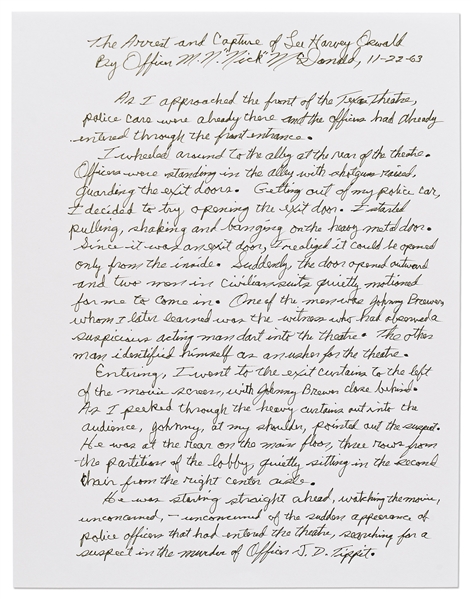 The Arrest and Capture of Lee Harvey Oswald
By Officer M.N. "Nick" McDonald, 11-22-63
As I approached the front of the Texas Theatre,
police cars were already there and the officers had already
entered through the front entrance.
I wheeled around to the alley at the rear of the theatre.
Officers were standing in the alley with shotguns raised,
guarding the exit doors. Getting out of my police car,
I decided to try opening the exit door. I started
pulling, shaking and banging on the heavy metal door.
Since it was an exit door, I realized it could be opened
only from the inside. Suddenly, the door opened outward
and two men in civilian suits quietly motioned
for me to come in. One of the men was Johnny Brewer,
whom I later learned was the witness who had observed a
suspicious acting man dart into the theatre. The other
man identified himself as an usher for the theatre.
Entering, I went to the exit curtains to the left
of the movie screen, with Johnny Brewer close behind.
As I peeked through the heavy curtains out into the
audience, Johnny, at my shoulder, pointed out the suspect.
He was at the rear on the main floor, three rows from
the partition of the lobby, quietly sitting in the second
chair from the right center aisle.
He was staring straight ahead, watching the movie,
unconcerned, - unconcerned of the sudden appearance of
police officers that had entered the theatre, searching for a
suspect in the murder of Officer J. D. Tippit.